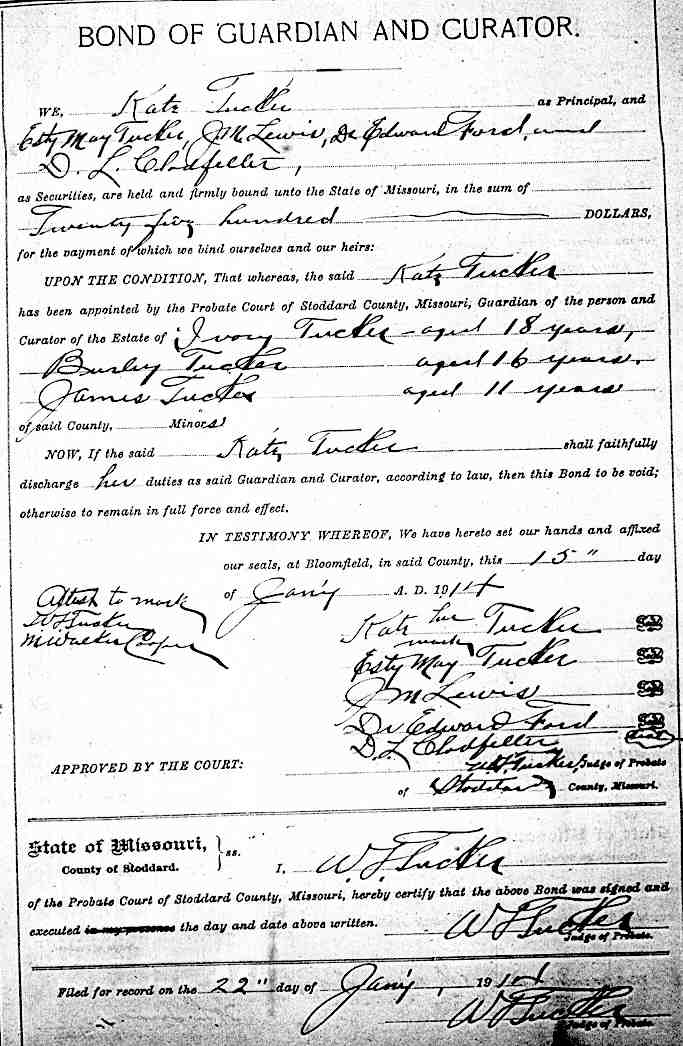 BOND OF GUARDIAN AND CURATOR.
WE, Kate Tucker as Principal, and
Esty May Tucker, J M Lewis, Dr Edward Ford, and
D. L. Clodfelter,
as Securities, are held and firmly bound unto the State of Missouri, in the sum of
Twenty five hundred DOLLARS,
for the payment of which we bind ourselves and our heirs:
UPON THE CONDITION, That whereas, the said Kate Tucker
has been appointed by the Probate Court of Stoddard County, Missouri, Guardian of the person and
Curator of the Estate of Ivory Tucker - aged 18 years,
Burley Tucker aged 16 years.
James Tucker aged 11 years
of said County, Minors
NOW, If the said Kate Tucker shall faithfully
discharge her duties as said Guardian and Curator, according to law, then this Bond to be void;
otherwise to remain in full force and effect.
IN TESTIMONY WHEREOF, We have hereto set our hands and affixed
our seals, at Bloomfield, in said County, this 15" day
of Jan'y A. D. 1914
Attest to mark
W F Tucker
M Walker Cooper
Kate her Tucker
mark
Esty May Tucker
J M Lewis
Dr Edward Ford
D. L Clodfelter seal
APPROVED BY THE COURT: W F Tucker, Judge of Probate
of Stoddard County, Missouri.
State of Missouri,
County of Stoddard. } ss. I, W F Tucker
of the Probate Court of Stoddard County, Missouri, hereby certify that the above Bond was signed and
executed in my presence the day and date above written. W F Tucker
Judge of Probate.
Filed for record on the 22" day of Jan'y, 1914
W F Tucker
Judge of Probate.